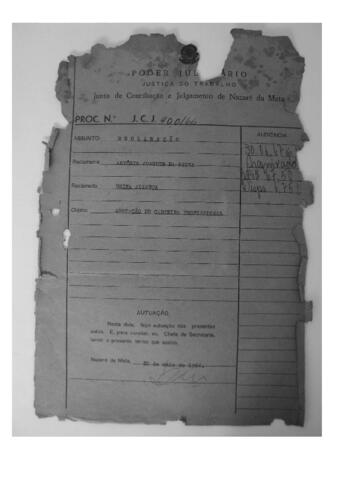 PODER JUL ÁRIO
JUSTIÇA DO TRABALHO
Junta de Conciliação e Julgamento de Nazaré da Mata
PROC. N.º J.C.J. 400/66
AUDIÊNCIA
ASSUNTO: RECLAMAÇÃO
Reclamante ANTÔNIO JOAQUIM DA
Reclamado USINA ALIANÇA
Objeto: ANOTAÇÃO DE CARTEIRA PROFISSIONAL
AUTUAÇÃO
Nesta data, faço autuação das presentes
E, para constar, eu, Chefe de Secretaria,
lavrei o presente termo que assino.
Nazaré da Mata, de maio de